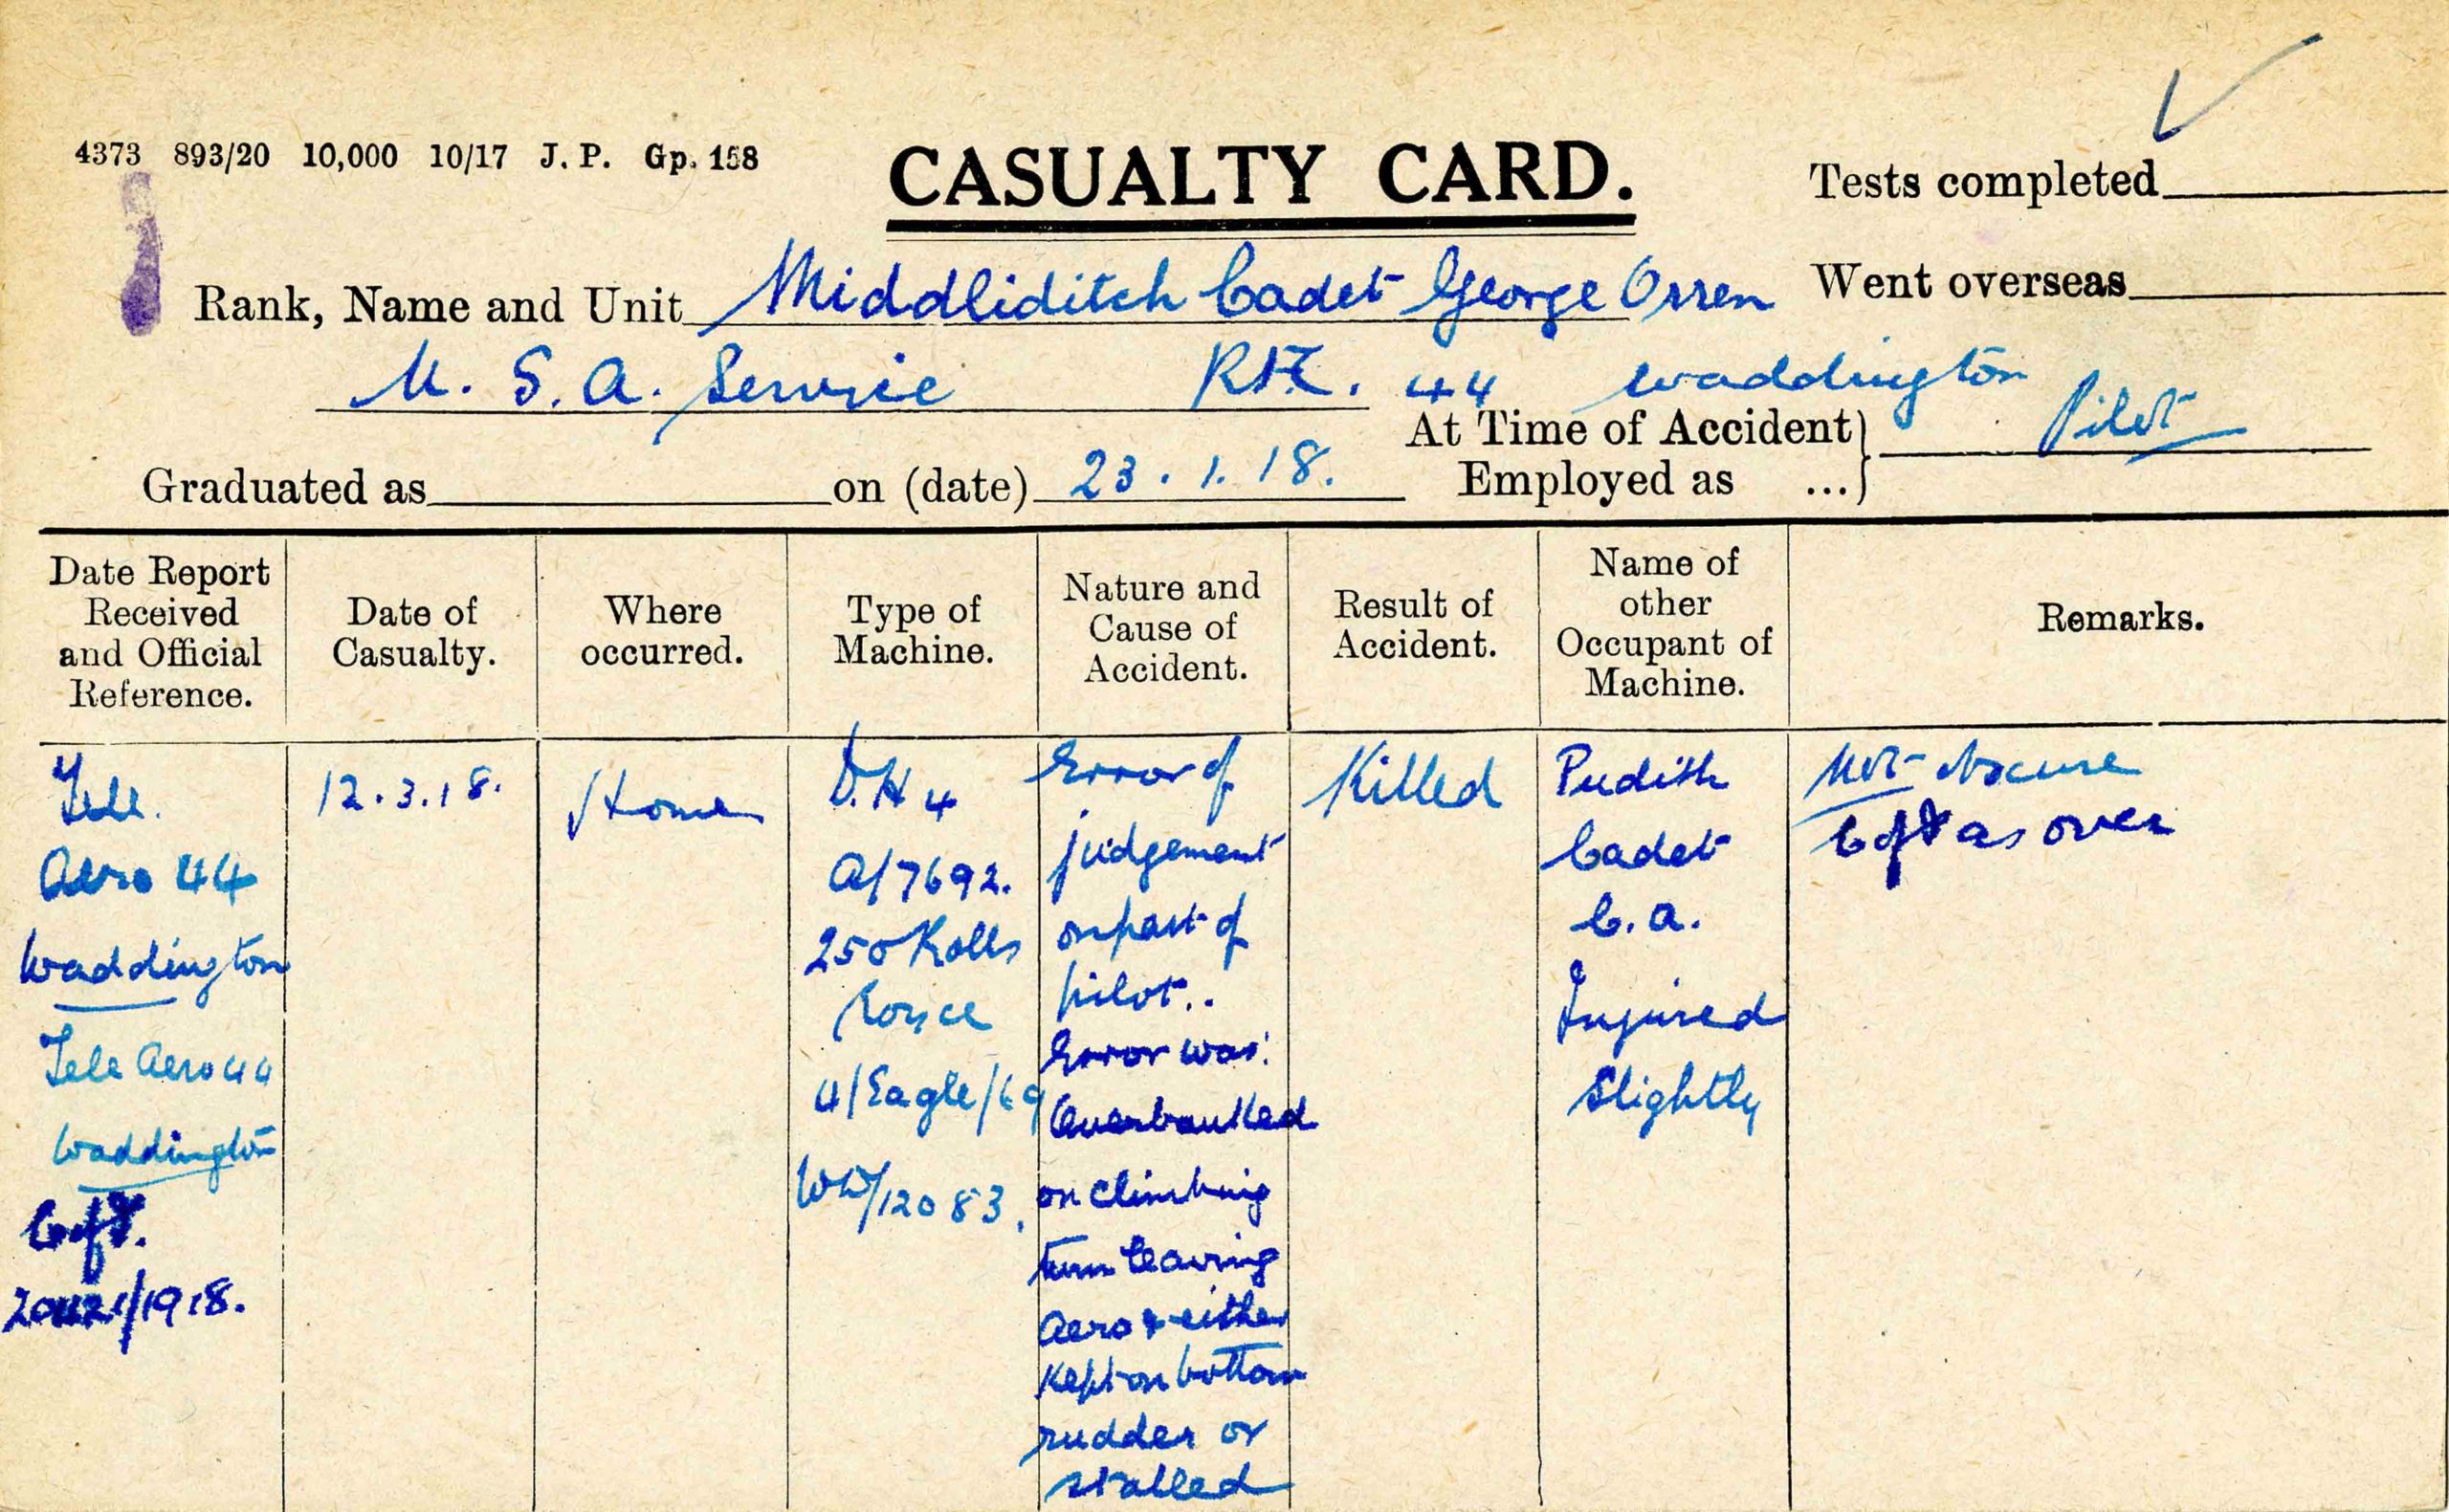 4373 893/20 10,000 10/17 J. P. Gp. 158
CASUALTY CARD.
Tests completed
Rank, Name and Unit Middliditch Cadet George Orren
Went overseas
U. S. A. Service 44 Waddington
At Time of Accident Employed as ... Pilot
Graduated as on (date) 23.1.18.
Date Report Received and Official Reference.
Date of Casualty.
Where occurred.
Type of Machine.
Nature and Cause of Accident.
Result of Accident.
Name of other Occupant of Machine.
Remarks.
Tele.
Aero 44
Waddington
Tele Aero 44
Waddington
Coft.
/1918.
12.3.18.
Home
D.H 4
A/7692.
250 Rolls
Royce
4/Eagle/69
WD/12083.
Error of
judgement
on part of
pilot..
Error was:
Overbanked
on climbing
turn leaving
Aero & either
Kept on bottom
rudder or
stalled
Killed
Pudith
Cadet
C. A.
Injured
Slightly
Not obscure
Coft as over